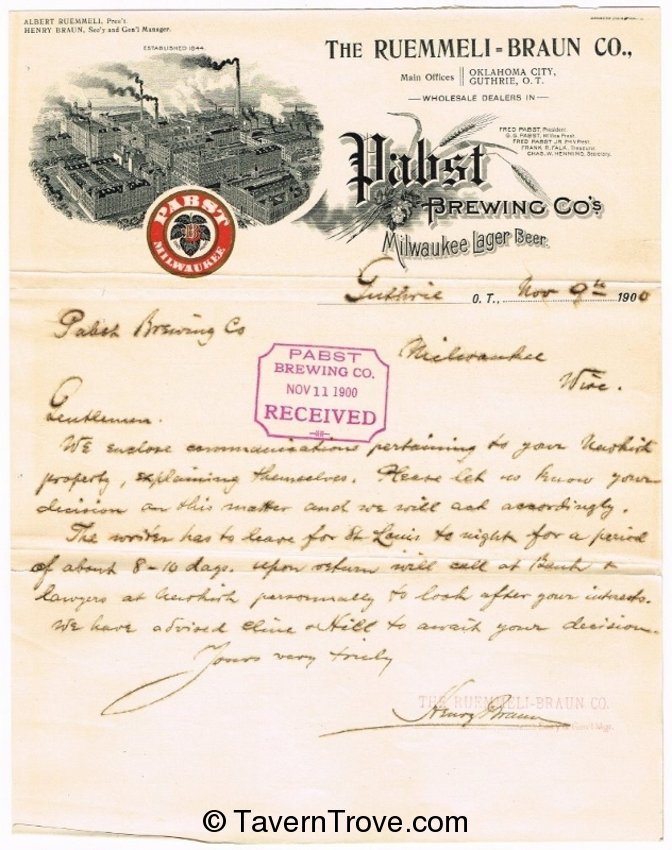 ALBERT RUEMMELI, Pres't.
HENRY BRAUN, Sec'y and Gen'l Manager.
ESTABLISHED 1844.
THE RUEMMELI-BRAUN CO.,
Main Offices OKLAHOMA CITY, GUTHRIE, O. T.
WHOLESALE DEALERS IN
FRED PABST, President.
FRED PABST JR.
FRANK R. FALK, Treasurer.
CHAS. W. HENNING, Secretary.
Pabst
BREWING CO'S
Milwaukee Lager Beer.
PABST
B
MILWAUKEE
Guthrie O. T., Nov 9th 1900
Pabst Brewing Co
Milwaukee
Wisc.
PABST
BREWING CO.
NOV 11 1900
RECEIVED
Gentlemen.
We enclose communications pertaining to your Newkirk
property, explaining themselves. Please let us know your
decision on this matter and we will act accordingly.
The writer has to leave for St Louis to night for a period
of about 8-10 days. Upon return will call at Bank &
lawyers at Newkirk personnally to look after your interests.
We have advised Cline & Hill to await your decision.
Yours very truly
THE RUEMMELI-BRAUN CO.
Henry Braun
Sec'y & Gen'l Mgr.
© TavernTrove.com